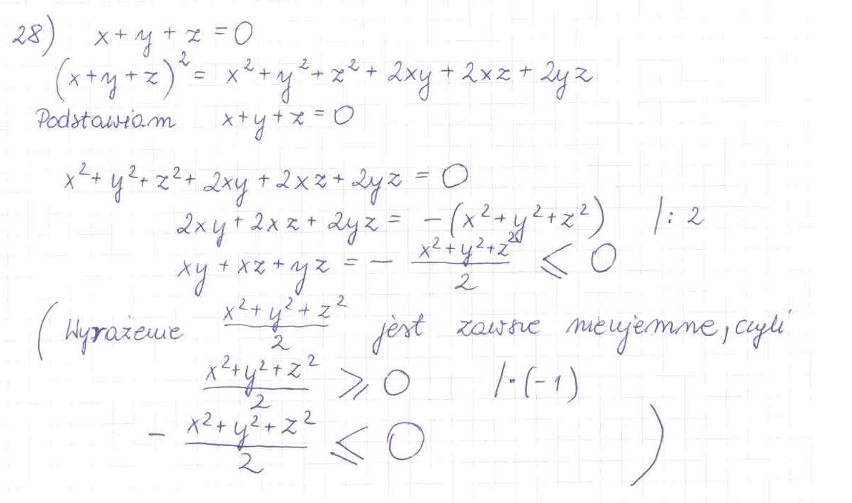 28) x + y + z = 0
(x + y + z)² = x² + y² + z² + 2xy + 2xz + 2yz
Podstawiam x + y + z = 0
x² + y² + z² + 2xy + 2xz + 2yz = 0
2xy + 2xz + 2yz = - (x² + y² + z²) /: 2
xy + xz + yz = - \frac{x² + y² + z²}{2} ⩽ 0
(Wyrażenie \frac{x² + y² + z²}{2} jest zawsze nieujemne, czyli
\frac{x² + y² + z²}{2} ⩾ 0 /· (-1)
- \frac{x² + y² + z²}{2} ⩽ 0 )